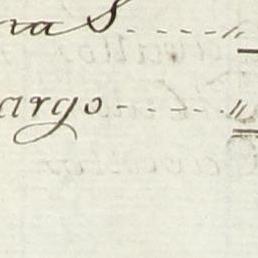 na S. - - - - "
argo - - - - - "